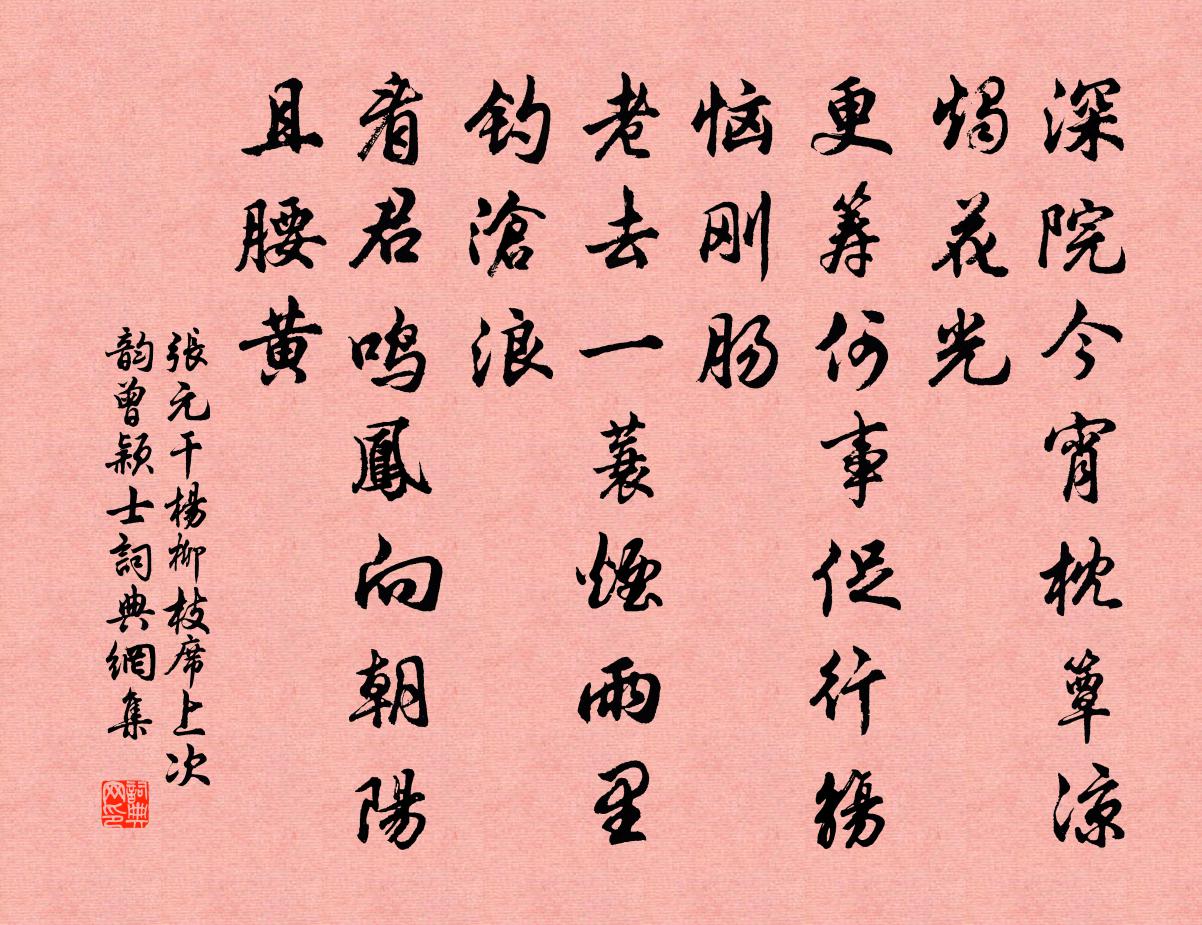 深院今宵枕簟凉
燭花光
更筹何事促行觴
恼刚肠
老去一蓑煙雨里
钓滄浪
看君鸣鳳向朝陽
且腰黄
張元干楊柳枝席上次
韵曾颖士詞典網集
詞典网印